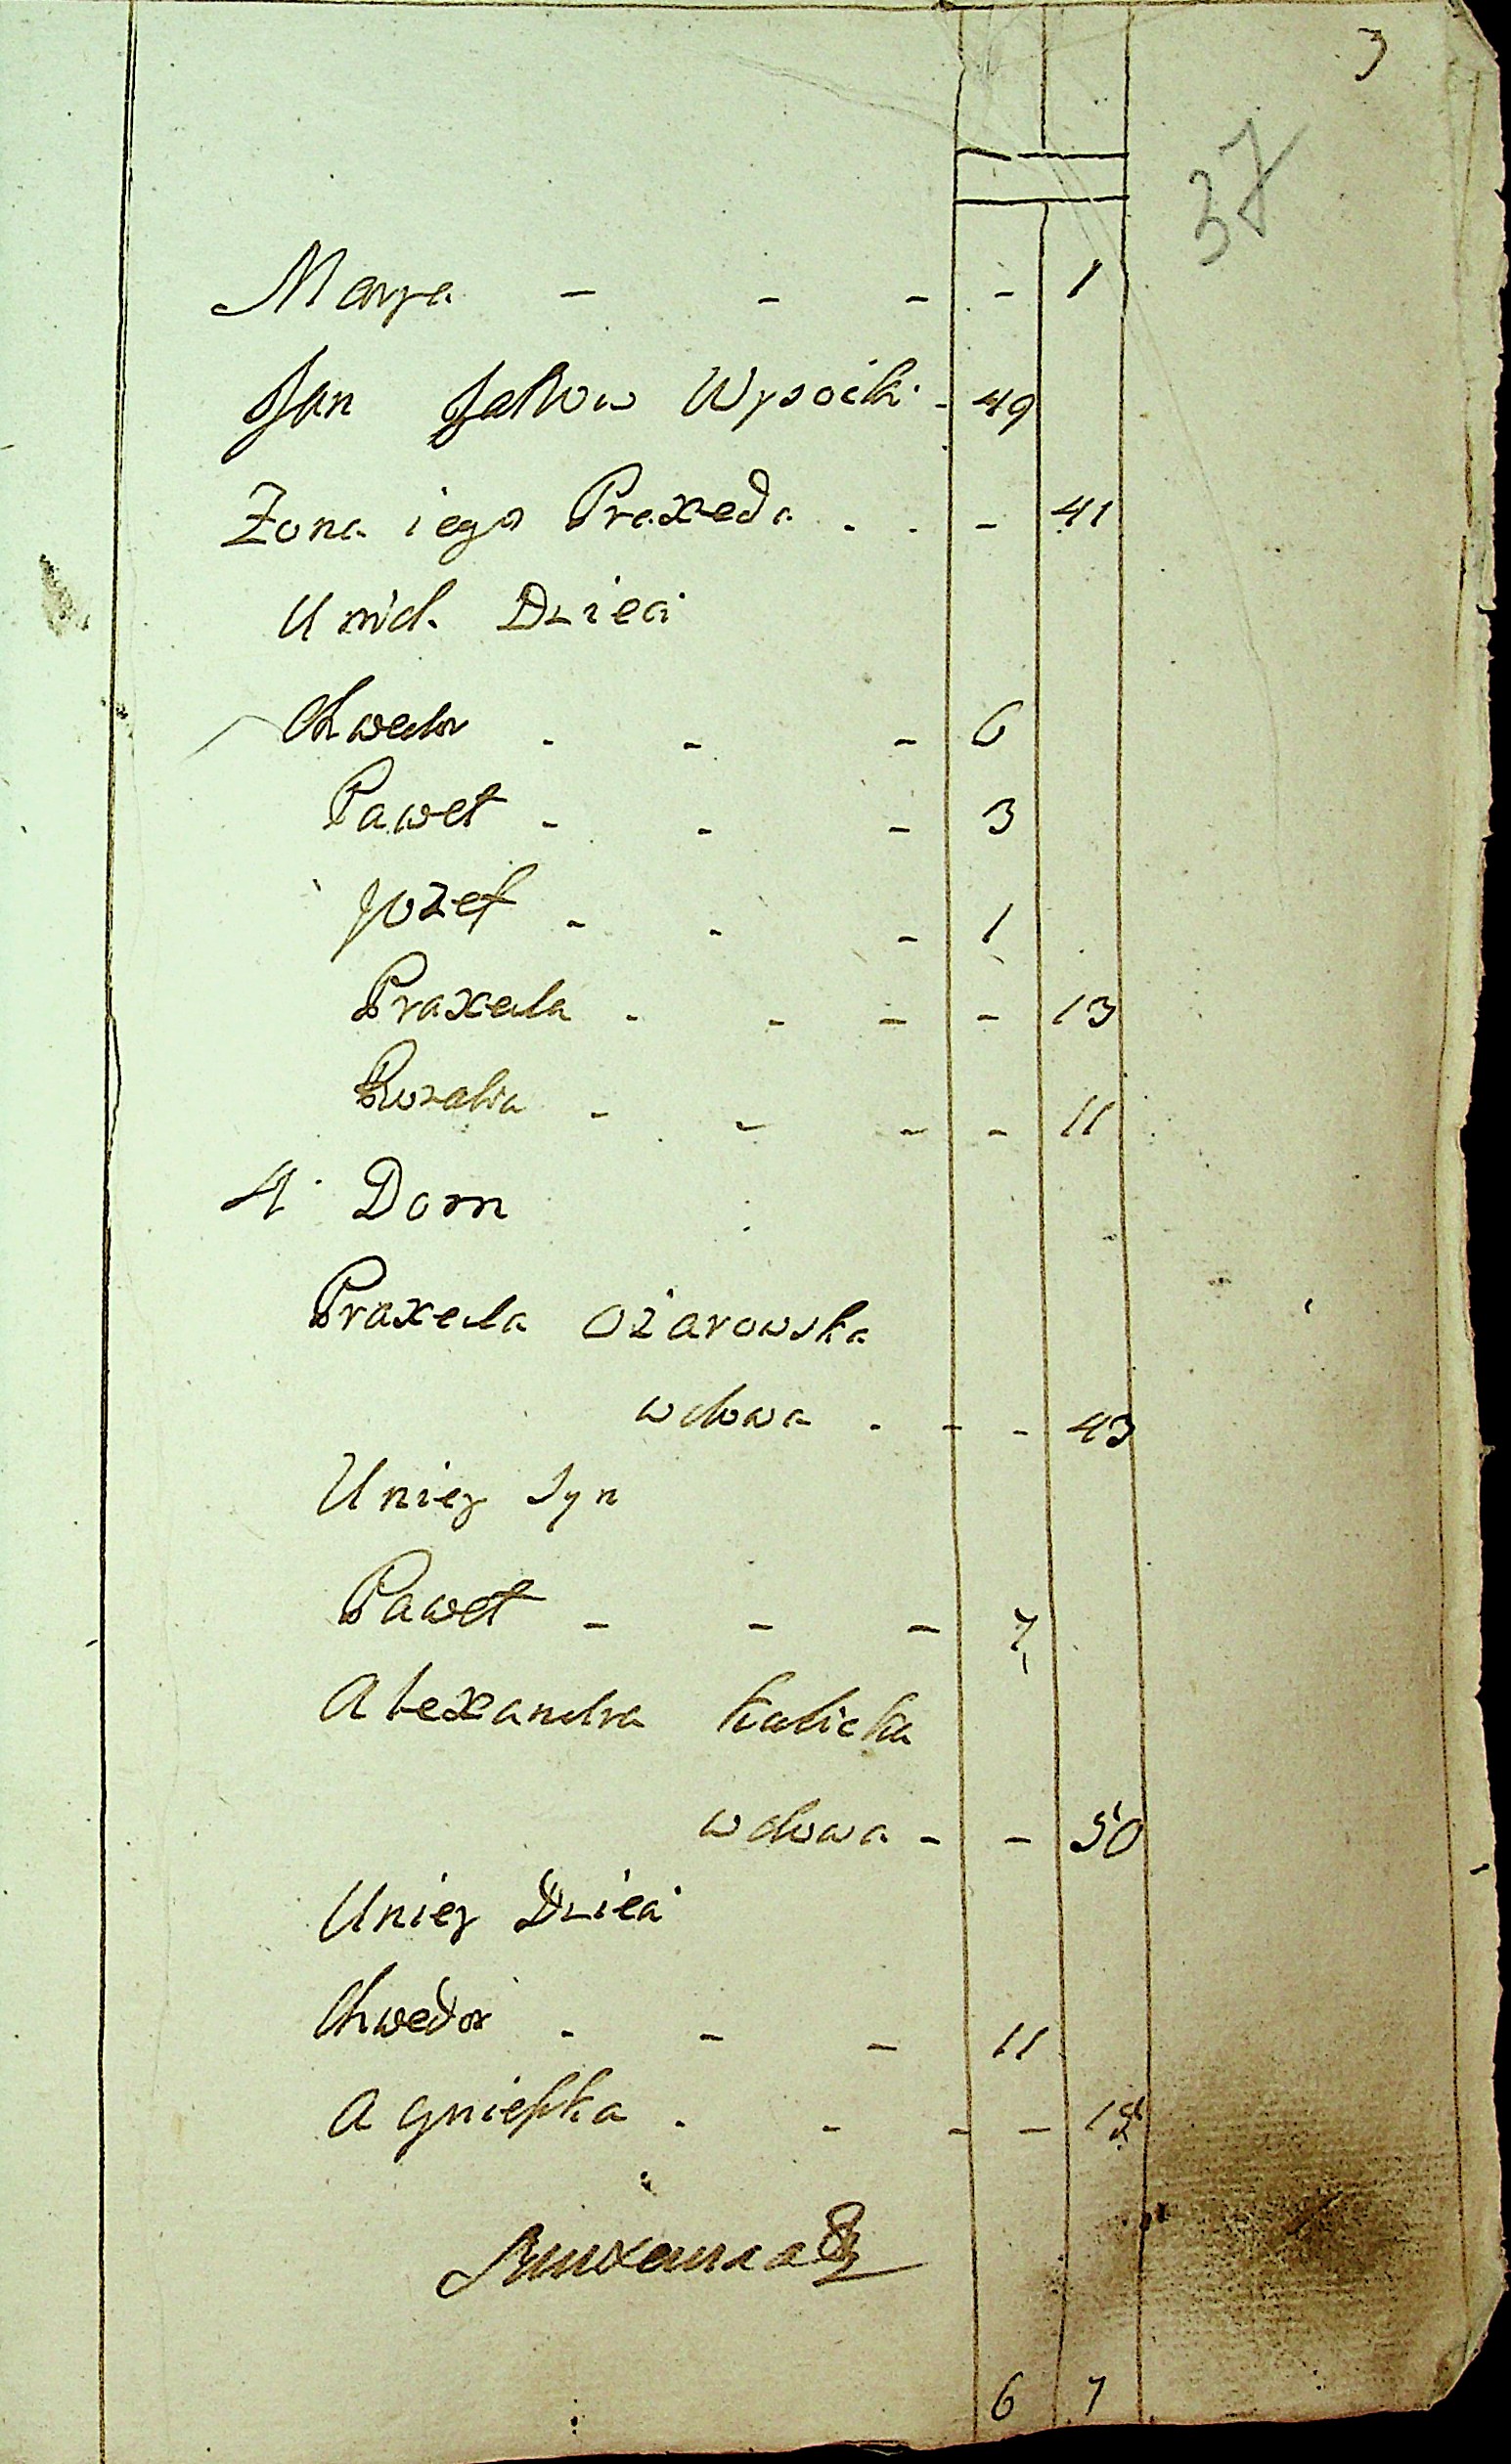 3
37
Marya - - - - 1
Jan Jakow Wysocki - 49
Zona iego Praxeda . . - 41
U nich Dzieci
Chwedor . - - 6
Paweł - - - 3
Jozef - - - 1
Praxeda - - - - 13
Rozalia - - - - 11
4 Dom
Praxeda Ożarowska
wdowa . - - 43
Uniey Syn
Paweł - - - 7
Alexandra Kalicka
wdowa - - 50
Uniey Dzieci
Chwedor . - - 11
Agnieszka . - - -
6 7